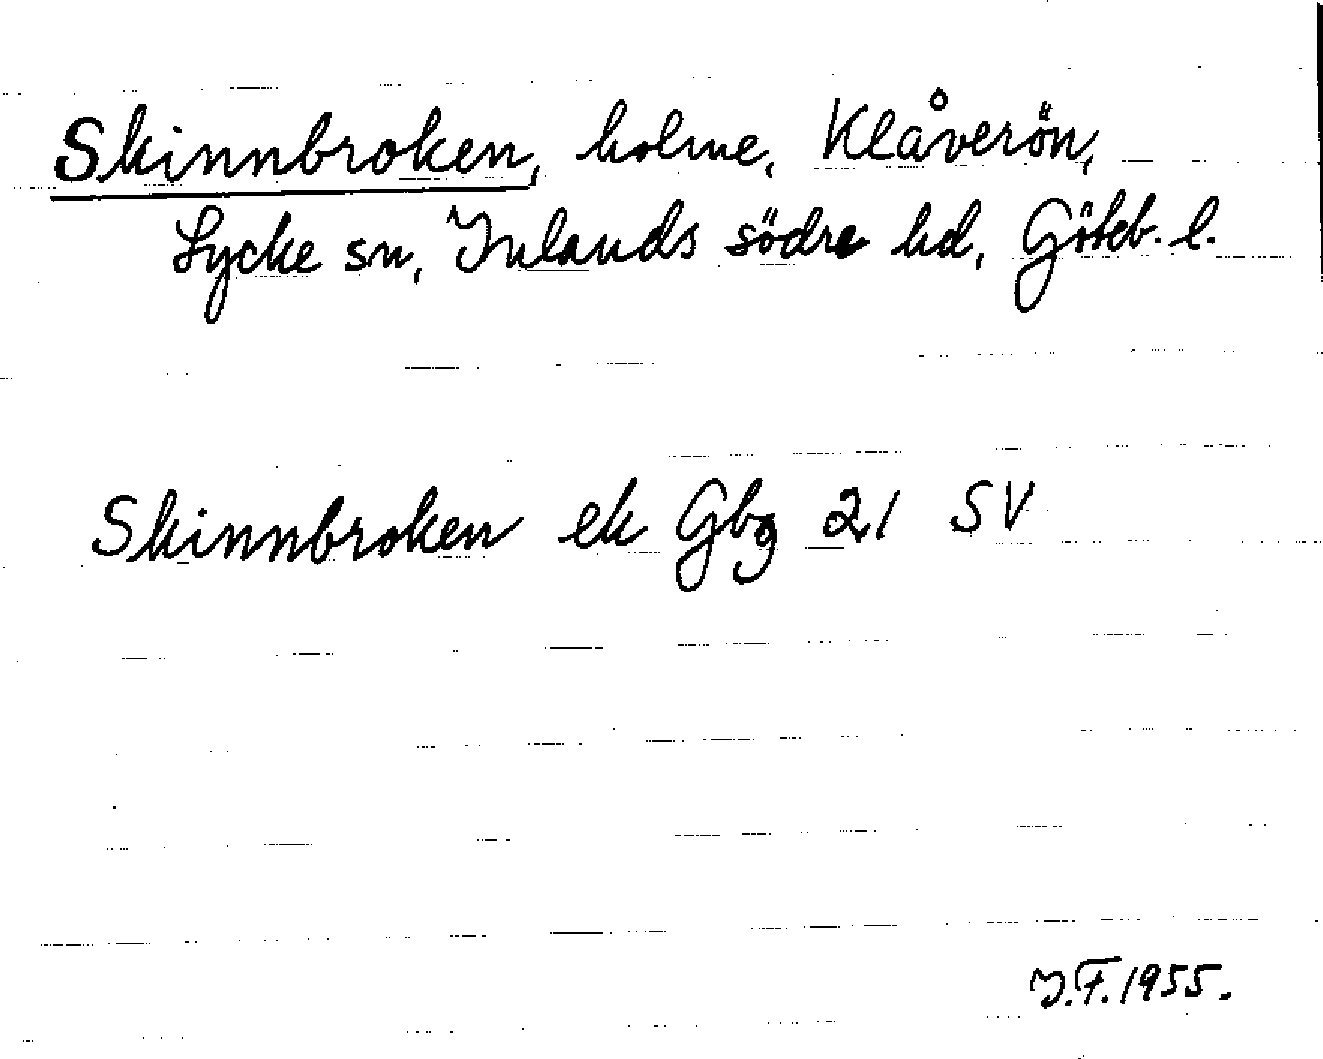 Skinnbroken, holme, Klåverön,
Lycke sn, Inlands södre hd, Göteb. l.
Skinnbroken ek Gbg 21 SV
I.F. 1955.